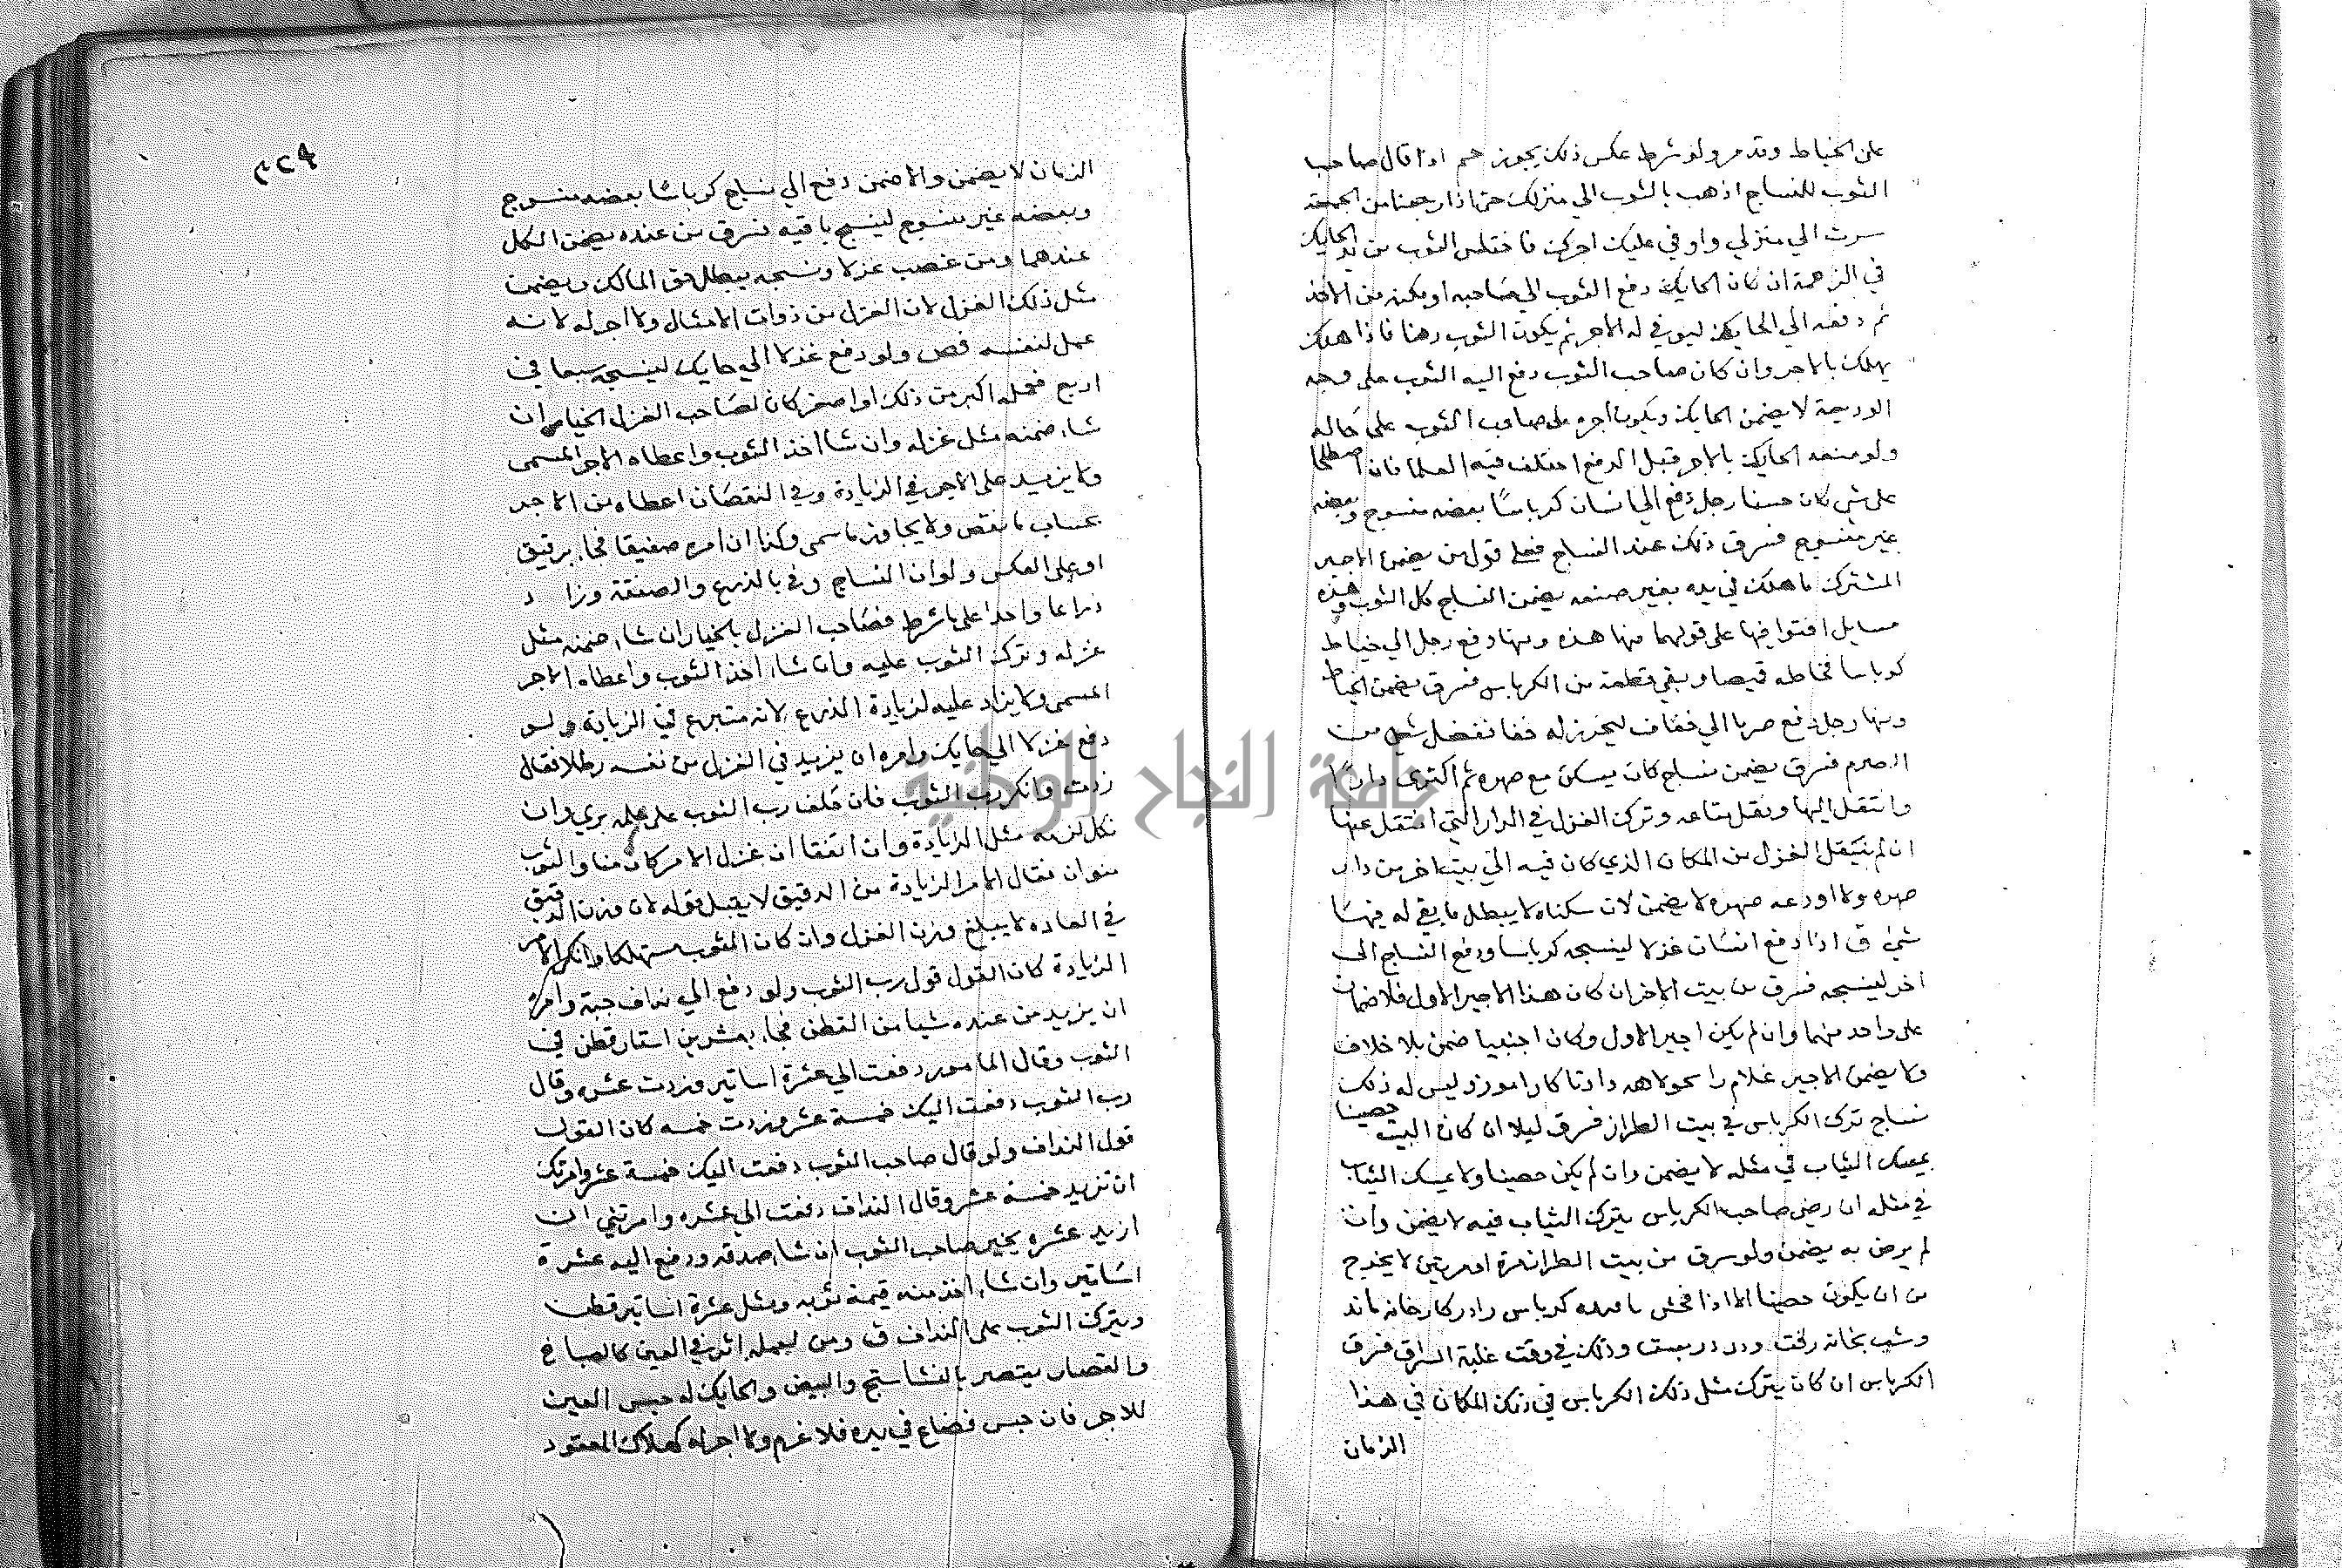 على الخياط وقد مر ولو شرط عكس ذلك يجوز حم اذا قال صاحب
الثوب للنساج اذهب بالثوب الي منزلك حتى اذا رجعنا من الجمعة
سرت الي منزلي واوفي عليك اجرك فاختلس الثوب من يد الحايك
في الزحمة ان كان الحايك دفع الثوب الي صاحبه او مكنه من الاخذ
ثم دفعه الي الحايك ليوفي له الاجر ثم يكون الثوب رهنا فاذا هلك
يهلك بالاجر وان كان صاحب الثوب دفع اليه الثوب على وجه
الوديعة لا يضمن الحايك ويكون اجره على صاحب الثوب على حاله
ولو منعه الحايك بالاجر قبل الدفع اختلف فيه العلما فان اصطلحا
على شي كان حسنا رجل دفع الي انسان كرباسا بعضه منسوج وبعضه
غير منسوج فسرق ذلك عند النساج فعلى قول من يضمن الاجير
المشترك ما هلك في يده بغير صنعه يضمن النساج كل الثوب وهذه
مسايل افتوا فيها على قولهما منها هذه ومنها دفع رجل الي خياط
كرباسا فخاطه قميصا وبقي قطعة من الكرباس فسرق يضمن الخياط
ومنها رجل دفع صرما الي خفاف ليخرز له خفا ففضل شي من
الصرم فسرق يضمن نساج كان يسكن مع صهره ثم اكترى دارا
وانتقل اليها ونقل متاعه وترك الغزل في الدار التي انتقل عنها
ان لم ينتقل الغزل من المكان الذي كان فيه الي بيت اخر من دار
صهره ولا اودعه صهره لا يضمن لان سكناه لا يبطل ما بقي له فيها
شي ق اذا دفع انسان غزلا لينسجه كرباسا ودفع النساج الى
اخر لينسجه فسرق من بيت الاخر ان كان هذا الاجير الاول فلا ضمان
على واحد منهما وان لم يكن اجير الاول وكان اجنبيا ضمن بلا خلاف
ولا يضمن الاجير غلام را بحولاهه داد تا كار اموزد ليس له ذلك
نساج ترك الكرباس في بيت الطراز فسرق ليلا ان كان البيت حصينا
يمسك الثياب في مثله لا يضمن وان لم يكن حصينا ولا يمسك الثياب
في مثله ان رضي صاحب الكرباس بترك الثياب فيه لا يضمن وان
لم يرض به يضمن ولو سرق من بيت الطراز مرة او مرتين لا يخرج
من ان يكون حصينا الا اذا فحش كرباس را در كارخانه ماند
وشب بخانه رفت ودر در بست وذلك في وقت غلبة السراق فسرق
الكرباس ان كان يترك مثل ذلك الكرباس في ذلك المكان في هذا
الزمان
٤٢٩
الزمان لا يضمن والا ضمن دفع الي نساج كرباسا بعضه منسوج
وبعضه غير منسوج لينسج باقيه فسرق من عنده يضمن الكل
عندهما ومن غصب غزلا ونسجه يبطل حق المالك ويضمن
مثل ذلك الغزل لان الغزل من ذوات الامثال ولا اجر له لانه
عمل لنفسه فص ولو دفع غزلا الي حايك لينسجه سبعا في
اربع فحمله اكبر من ذلك او اصغر كان لصاحب الغزل الخيار ان
شاء ضمنه مثل غزله وان شا اخذ الثوب واعطاه الاجر المسمى
ولا يزيد على الاجر في الزيادة وفي النقصان اعطاه من الاجر
بحساب ما نقص ولا يجاوز ما سمى وكذا ان امره صفيقا فجاء برقيق
او على العكس ولو ان النساج وفي بالذرع والصفقة وزاد
ذراعا واحدا على ما شرط فصاحب الغزل بالخيار ان شاء ضمنه مثل
غزله وترك الثوب عليه وان شاء اخذ الثوب واعطاه الاجر
المسمى ولا يزاد عليه لزيادة الذرع لانه متبرع في الزيادة ولو
دفع غزلا الي حايك وامره ان يزيد في الغزل من نفسه رطلا فقال
زدت وانكر رب الثوب فان حلف رب الثوب على علمه بري وان
نكل لزمه مثل الزيادة وان اتفقا ان غزل الامر كان منا والثوب
منوان فقال الامر الزيادة من الدقيق لا يقبل قوله لان وزن الدقيق
في العاده لا يبلغ وزن الغزل وان كان الثوب مستهلكا وانكر الامر
الزيادة كان القول قول رب الثوب ولو دفع الي نداف جبة وامره
ان يزيد من عنده شيا من القطن فجاء بعشرين استار قطن في
الثوب وقال المامور دفعت الي عشرة اساتير وزدت عشره وقال
رب الثوب دفعت اليك خمسة عشر وزدت خمسه كان القول
قول النداف ولو قال صاحب الثوب دفعت اليك خمسة عشر وامرتك
ان تزيد خمسة عشر وقال النداف دفعت الي عشره وامرتني ان
ازيد عشره يخير صاحب الثوب ان شاء صدقه ودفع اليه عشرة
اساتير وان شاء اخذ منه قيمة ثوبه ومثل عشرة اساتير قطن
ويترك الثوب على النداف ق ومن لعمله اثر في العين كالصباغ
والقصار يقصر بالنشاستج والبيض والحايك له حبس العين
للاجر فان حبس فضاع في يده فلا غرم ولا اجر له كهلاك المعقود
جامعة النجاح الوطنية